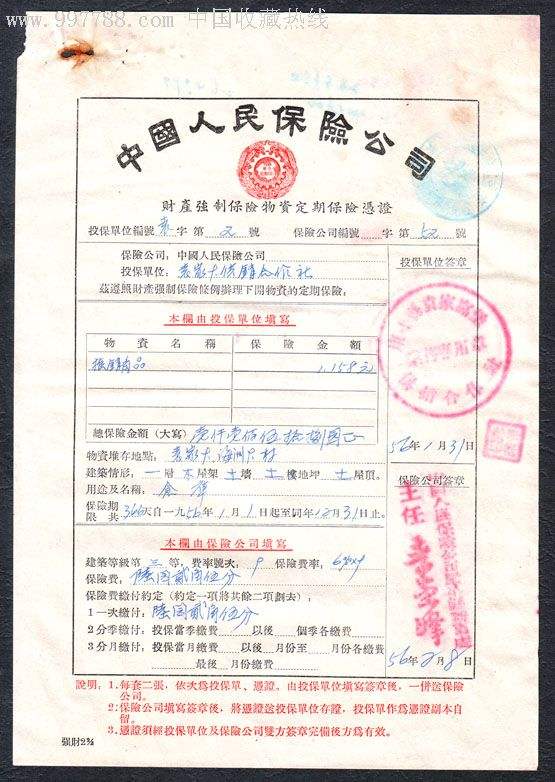 www.997788.com 中国收藏热线
中國人民保險公司
財產強制保險物資定期保險憑證
投保單位編號 字第 號 保險公司編號 字第 號
保險公司:中國人民保險公司
投保單位: 供銷合作社
茲遵照財產強制保險條例辦理下開物資的定期保險:
投保單位簽章
本欄由投保單位填寫
物資名稱 保險金額
1,158元
總保險金額(大寫) 壹仟壹佰伍拾捌圓正
物資堆存地點:
56年1月31日
建築情形:一層木屋架土墻土樓地坪土屋頂。
用途及名稱:倉庫
保險公司簽章
保險期限共366天自一九56年1月1日起至同年12月31日止。
主任
本欄由保險公司填寫
建築等級第三等,費率號次,9 保險費率,
保險費:陸圓貳角伍分
保險費繳付約定(約定一項將其餘二項劃去):
1一次繳付:陸圓貳角伍分
2分季繳付:投保當季繳費 以後 個季各繳費
3分月繳付:投保當月繳費 以後 月份至 月份各繳費
最後 月份繳費
56年2月8日
說明:1.每套二張,依次為投保單、憑證、由投保單位填寫簽章後,一併送保險
公司。
2.保險公司填寫簽章後,將憑證送投保單位存證,投保單作為憑證副本自
留。
3.憑證須經投保單位及保險公司雙方簽章完備後方為有效。
強財2¾